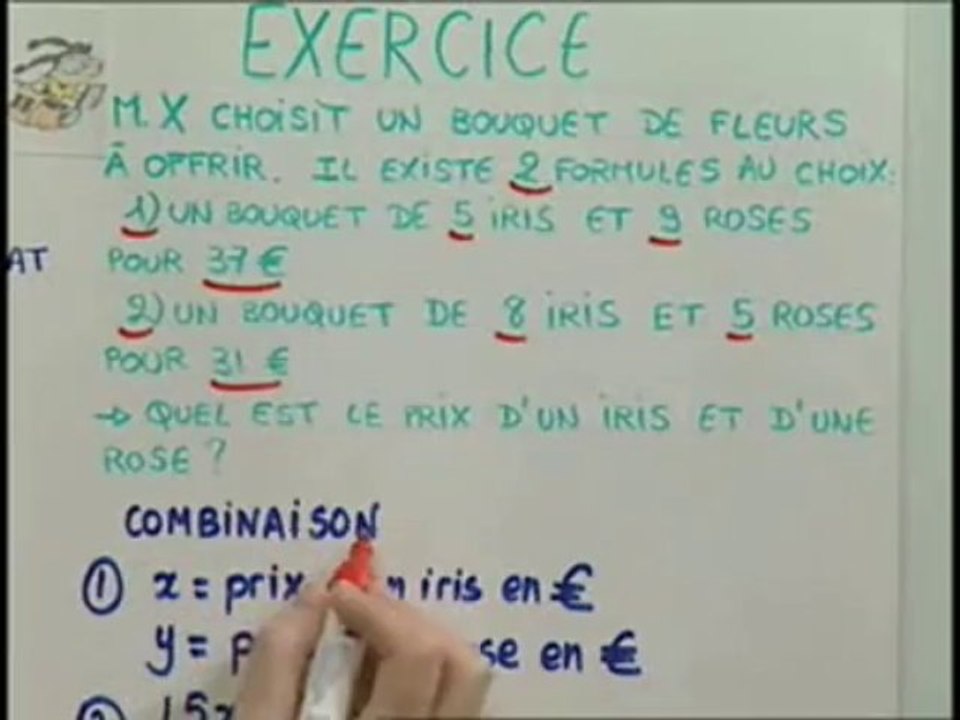 EXERCICE
M. X CHOISIT UN BOUQUET DE FLEURS
À OFFRIR. IL EXISTE 2 FORMULES AU CHOIX:
1) UN BOUQUET DE 5 IRIS ET 9 ROSES
AT
POUR 37 €
2) UN BOUQUET DE 8 IRIS ET 5 ROSES
POUR 31 €
→ QUEL EST LE PRIX D'UN IRIS ET D'UNE
ROSE ?
COMBINAISON
① x = prix iris en €
y = en €
② 5x